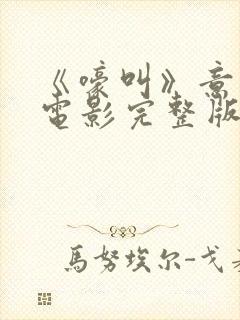 《嚎叫》意
电影完整版
馬努埃尔-戈